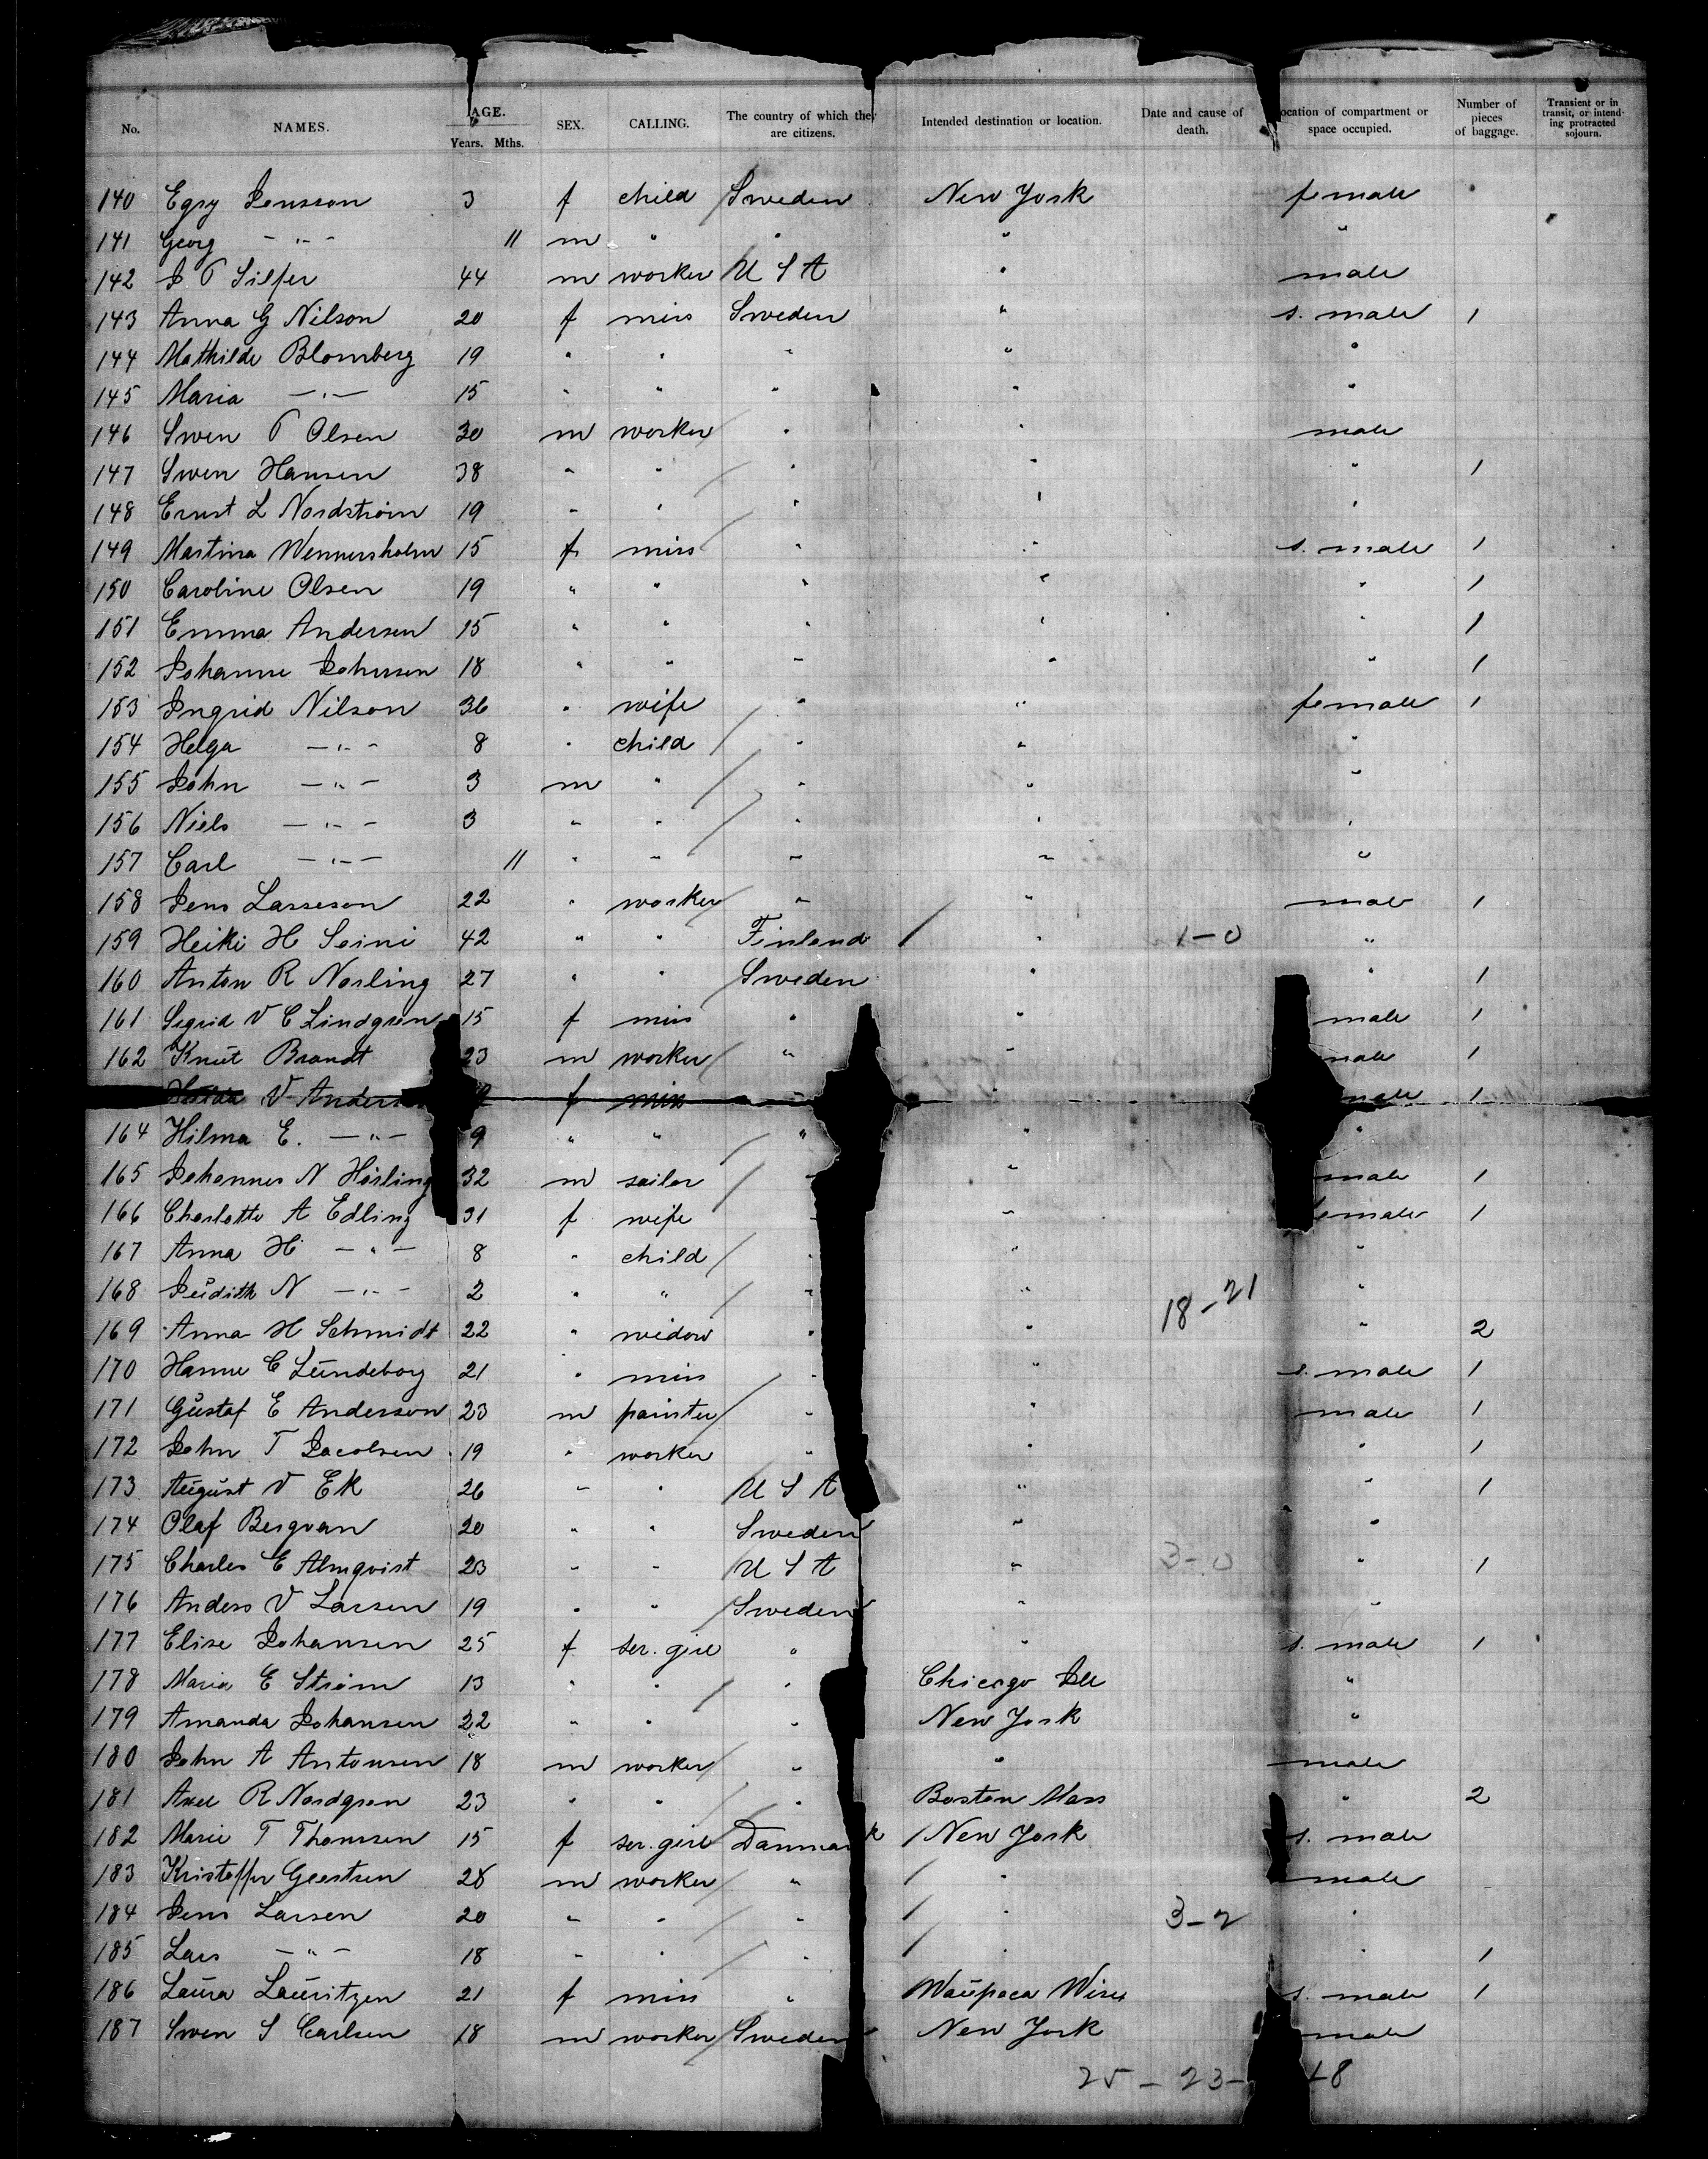 No. NAMES. AGE. Years. Mths. SEX. CALLING. The country of which they are citizens. Intended destination or location. Date and cause of death. ocation of compartment or space occupied. Number of pieces of baggage. Transient or in transit, or intending protracted sojourn.
140 Egry Jensson 3 f child Sweden New York female
141 Georg - " - 11 m " " " "
142 J P Silfer 44 m worker U S A " male
143 Anna G Nilson 20 f miss Sweden " s. male 1
144 Mathilde Blomberg 19 " " " " "
145 Maria - " - 15 " " " " "
146 Swen P Olsen 30 m worker " " male
147 Swen Hansen 38 " " " " " 1
148 Ernst L Nordström 19 " " " " "
149 Martina Wennersholm 15 f miss " " s. male 1
150 Caroline Olsen 19 " " " " " 1
151 Emma Andersen 15 " " " " " 1
152 Johanne Johnsen 18 " " " " " 1
153 Ingrid Nilson 36 " wife " " female 1
154 Helga - " - 8 " child " " "
155 John - " - 3 m " " " "
156 Niels - " - 3 " " " " "
157 Carl - " - 11 " " " " "
158 Jens Lasseson 22 " worker " " male 1
159 Heiki H Seini 42 " " Finland " 1-0 "
160 Anton R Norling 27 " " Sweden " " 1
161 Sigrid V C Lindgren 15 f miss " " male 1
162 Knut Brandt 23 m worker " " male 1
V Anders f miss " male 1
164 Hilma E. - " - 9 " " " " "
165 Johannes N Hörling 32 m sailor " " male 1
166 Charlotte A Edling 31 f wife " " female 1
167 Anna H - " - 8 " child " " "
168 Judith N - " - 2 " " " " 18-21 "
169 Anna H Schmidt 22 " widow " " " 2
170 Hanne C Lundeborg 21 " miss " " s. male 1
171 Gustaf E Anderson 23 m painter " " male 1
172 John T Jacobsen 19 " worker " " " 1
173 August V Ek 26 " " U S A " " 1
174 Olaf Bergvan 20 " " Sweden " "
175 Charles E Almqvist 23 " " U S A " 3-0 " 1
176 Anders V Larsen 19 " " Sweden " "
177 Elise Johansen 25 f ser. girl " " s. male 1
178 Maria E Ström 13 " " " Chicago Ill "
179 Amanda Johansen 22 " " " New York "
180 John A Antonsen 18 m worker " " male
181 Axel R Nordgren 23 " " " Boston Mass " 2
182 Marie T Thomsen 15 f ser. girl Danmark New York s. male
183 Kristoffer Geertsen 28 m worker " " male
184 Jens Larsen 20 " " " " 3-2 "
185 Lars - " - 18 " " " " " 1
186 Laura Lauritzen 21 f miss " Waupaca Wisc s. male 1
187 Swen S Carlsen 18 m worker Sweden New York male
25 - 23 - 18